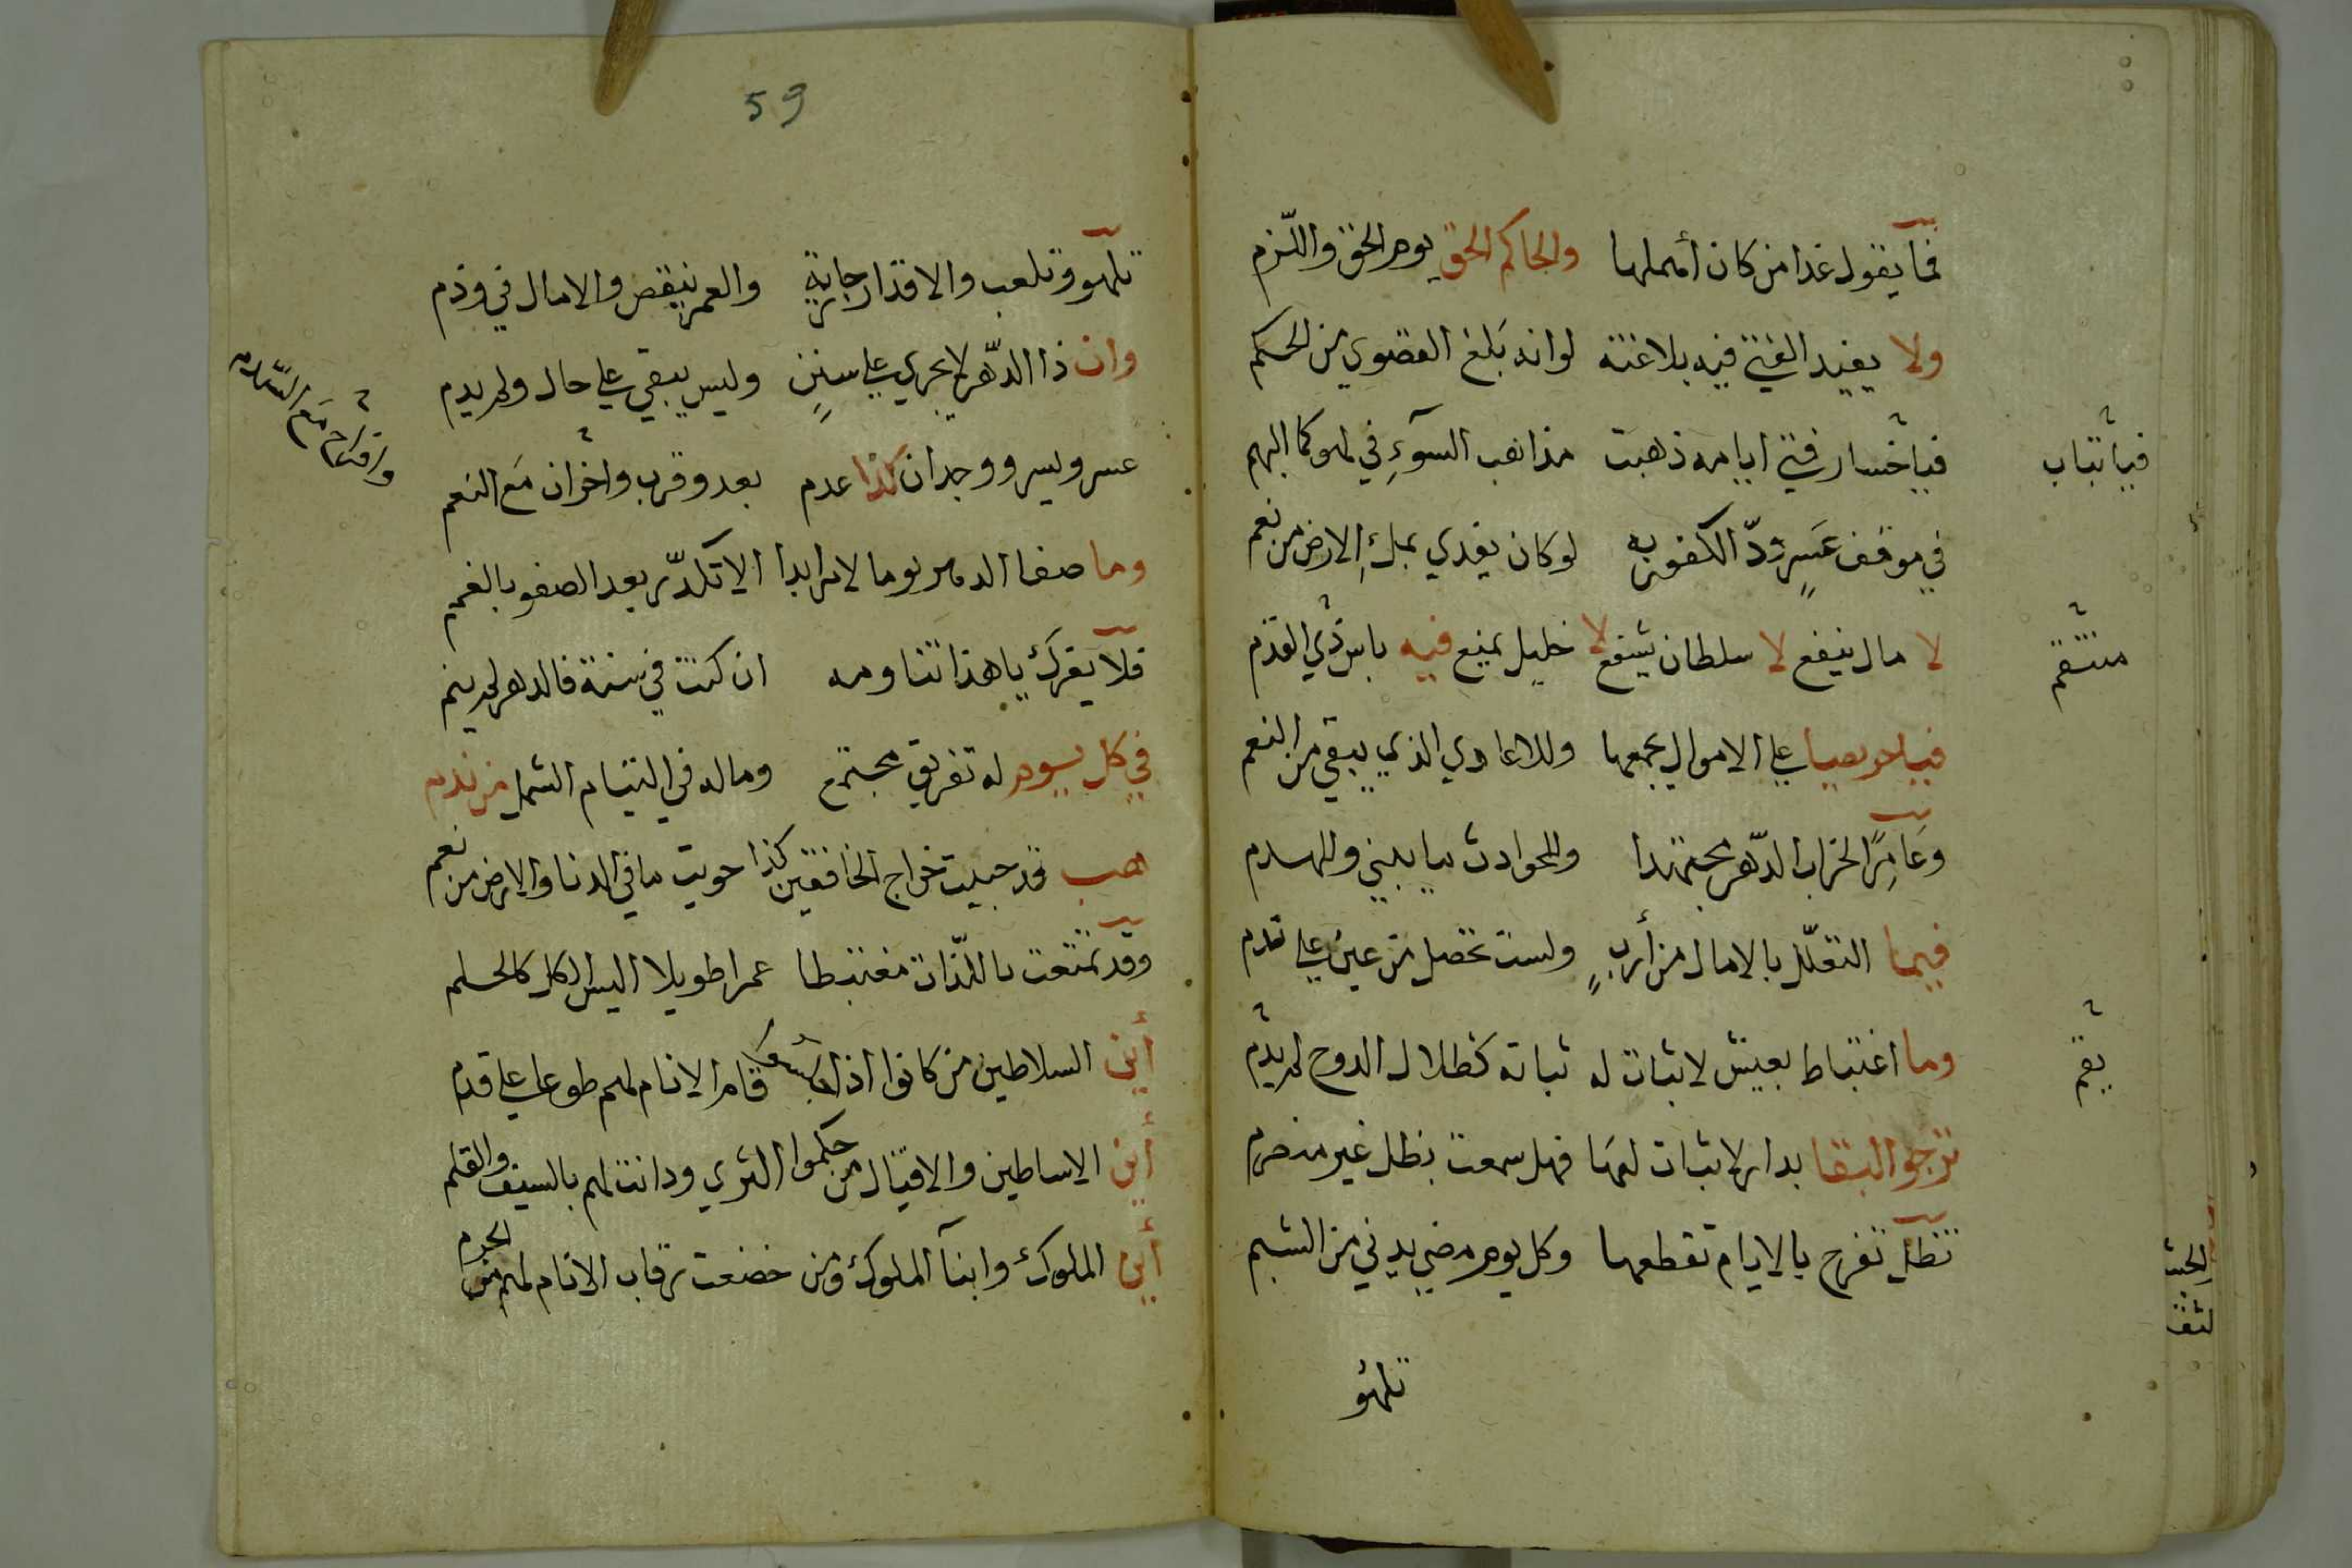 فما يقول غدا من كان أهملها والحاكم الحق يوم الحق واللزم
ولا يفيد الفتى فيه بلاغته لو انه بلغ القصوي من الحكم
فياخسار فتى ايامه ذهبت مذاهب السوء في لهو كما البهم
فياتباب
في موقف عسر ودّ الكفور به لو كان يفدي بملء الارض من نعم
لا مال ينفع لا سلطان يشفع لا خليل يمنع فيه باس ذي القدم
منتقم
فياحريصا على الاموال يجمعها وللاعادي الذي يبقي من النعم
وعامرًا لخراب الدّهر مجتهدا وللحوادث ما يبني وللهدم
فيما التعلّل بالامال من أرب ولست تحصل من عين على قدم
وما اغتباط بعيش لا ثبات له ثباته كظلال الدوح لم يدم
يقم
ترجو البقا بدار لا ثبات لها فهل سمعت بظل غير منصرم
تظل تفرح بالايام تقطعها وكل يوم مضي يدني من الشبم
تلهو
59
تلهو وتلعب والاقدار جارية والعمر ينقص والامال في وذم
وان ذا الدّهر لا يجري على سنن وليس يبقي على حال ولم يدم
عسر ويسر ووجدان كذا عدم بعد وقرب واخزان مع النعم
وافتراح مع
وما صفا الدهر يوما لامر ابدا الا تكدّر بعد الصفو بالغمم
فلا يغرك ياهذا تناومه ان كنت في سنة فالدهر لم ينم
في كل يوم له تفريق مجتمع وماله في التيام الشمل من ندم
هب قد جبيت خراج الخافقين كذا حويت ما في الدنا والارض من نعم
وقد تمتعت باللذات مغتبطا عمرا طويلا اليس الكل كالحلم
أين السلاطين من كانوا اذا قام الانام لهم طوعا على قدم
أين الاساطين والاقيال من حكموا الثري ودانت لهم بالسيف والقلم
أين الملوك وابنآ الملوك ومن خضعت رقاب الانام لهم من الحرم